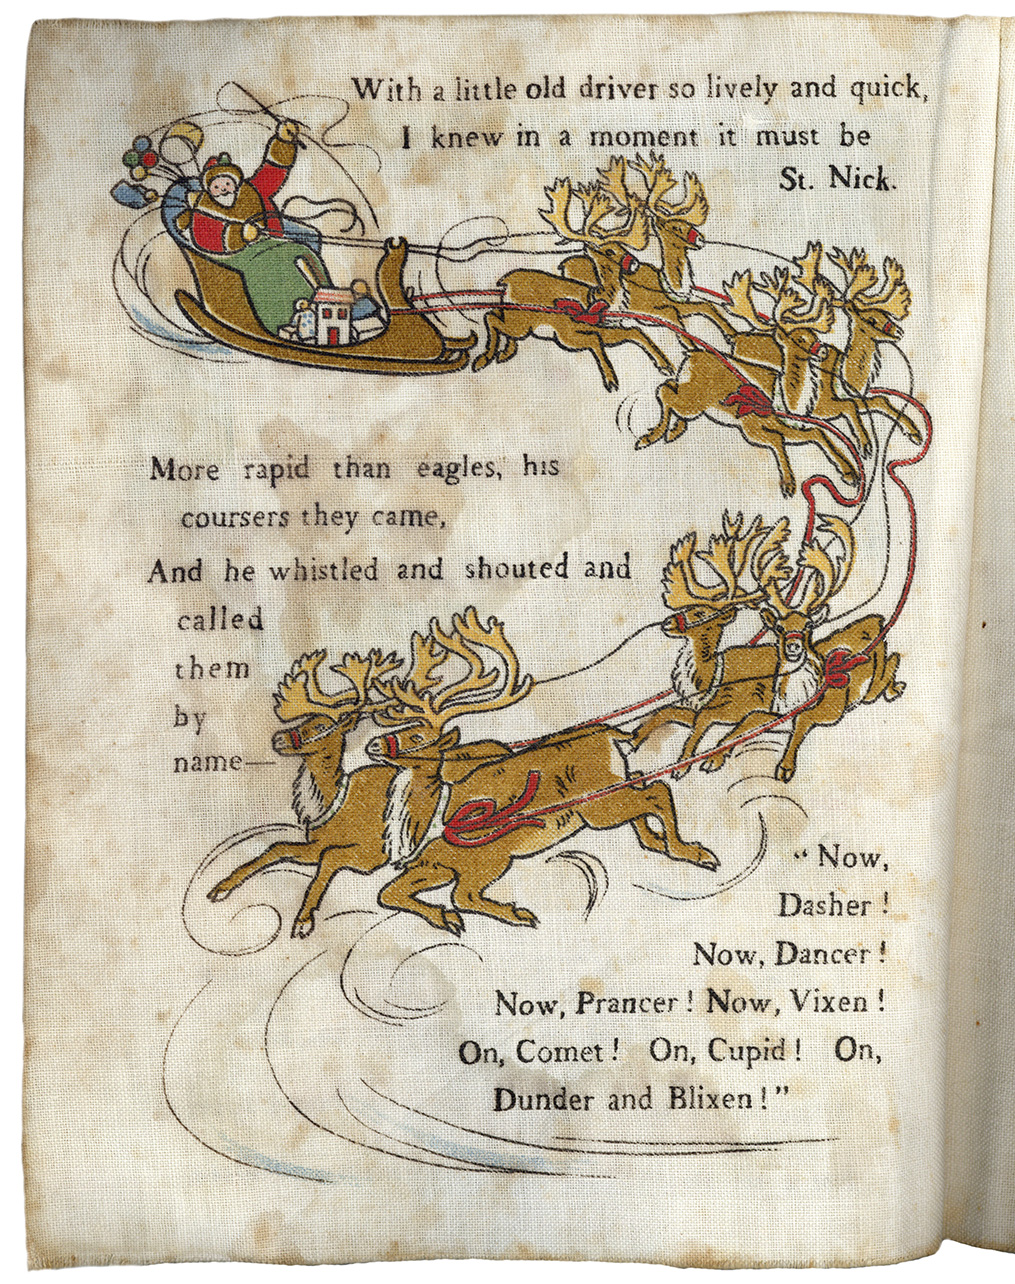 With a little old driver so lively and quick,
I knew in a moment it must be
St. Nick.
More rapid than eagles, his
coursers they came,
And he whistled and shouted and
called
them
by
name—
“Now,
Dasher!
Now, Dancer!
Now, Prancer! Now, Vixen!
On, Comet! On, Cupid! On,
Dunder and Blixen!”